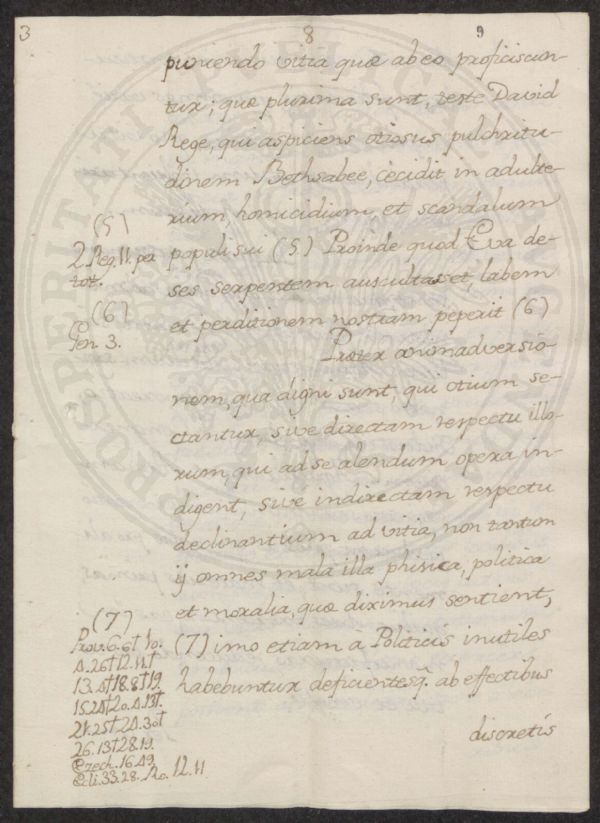 3
8
9
puniendo vitia quæ ab eo proficiscun-
tur; quæ plurima sunt, teste David
Rege, qui aspiciens otiosus pulchritu-
dinem Bethsabee, cecidit in adulte-
rium, homicidium, et scandalum
(5)
2. Reg. 11. per
tot.
populi sui (5.) Proinde quod Eva de-
ses serpentem auscultasset, labem
et perditionem nostram peperit (6)
(6)
Gen. 3.
Præter animadversio-
nem, qua digni sunt, qui otium se-
ctantur, sive directam respectu illo-
rum, qui ad se alendum opera in-
digent, sive indirectam respectu
declinantium ad vitia, non tantum
ij omnes mala illa phisica, politica
et moralia, quæ diximus sentient,
(7) imo etiam à Politicis inutiles
habebuntur deficientesq. ab effectibus
discretis
(7)
Prov. 6. 6 † 10.
4. 26 † 12. 11 †
13. 4 † 18. 8 † 19.
15. 24 † 20. 4. 13 †.
21. 25 † 24. 30 †
26. 13 † 28. 19.
Ezech. 16. 49.
Eli. 33. 28. Ro. 12. 11
PROSPERITATI PUBLICAE AUGENDAE